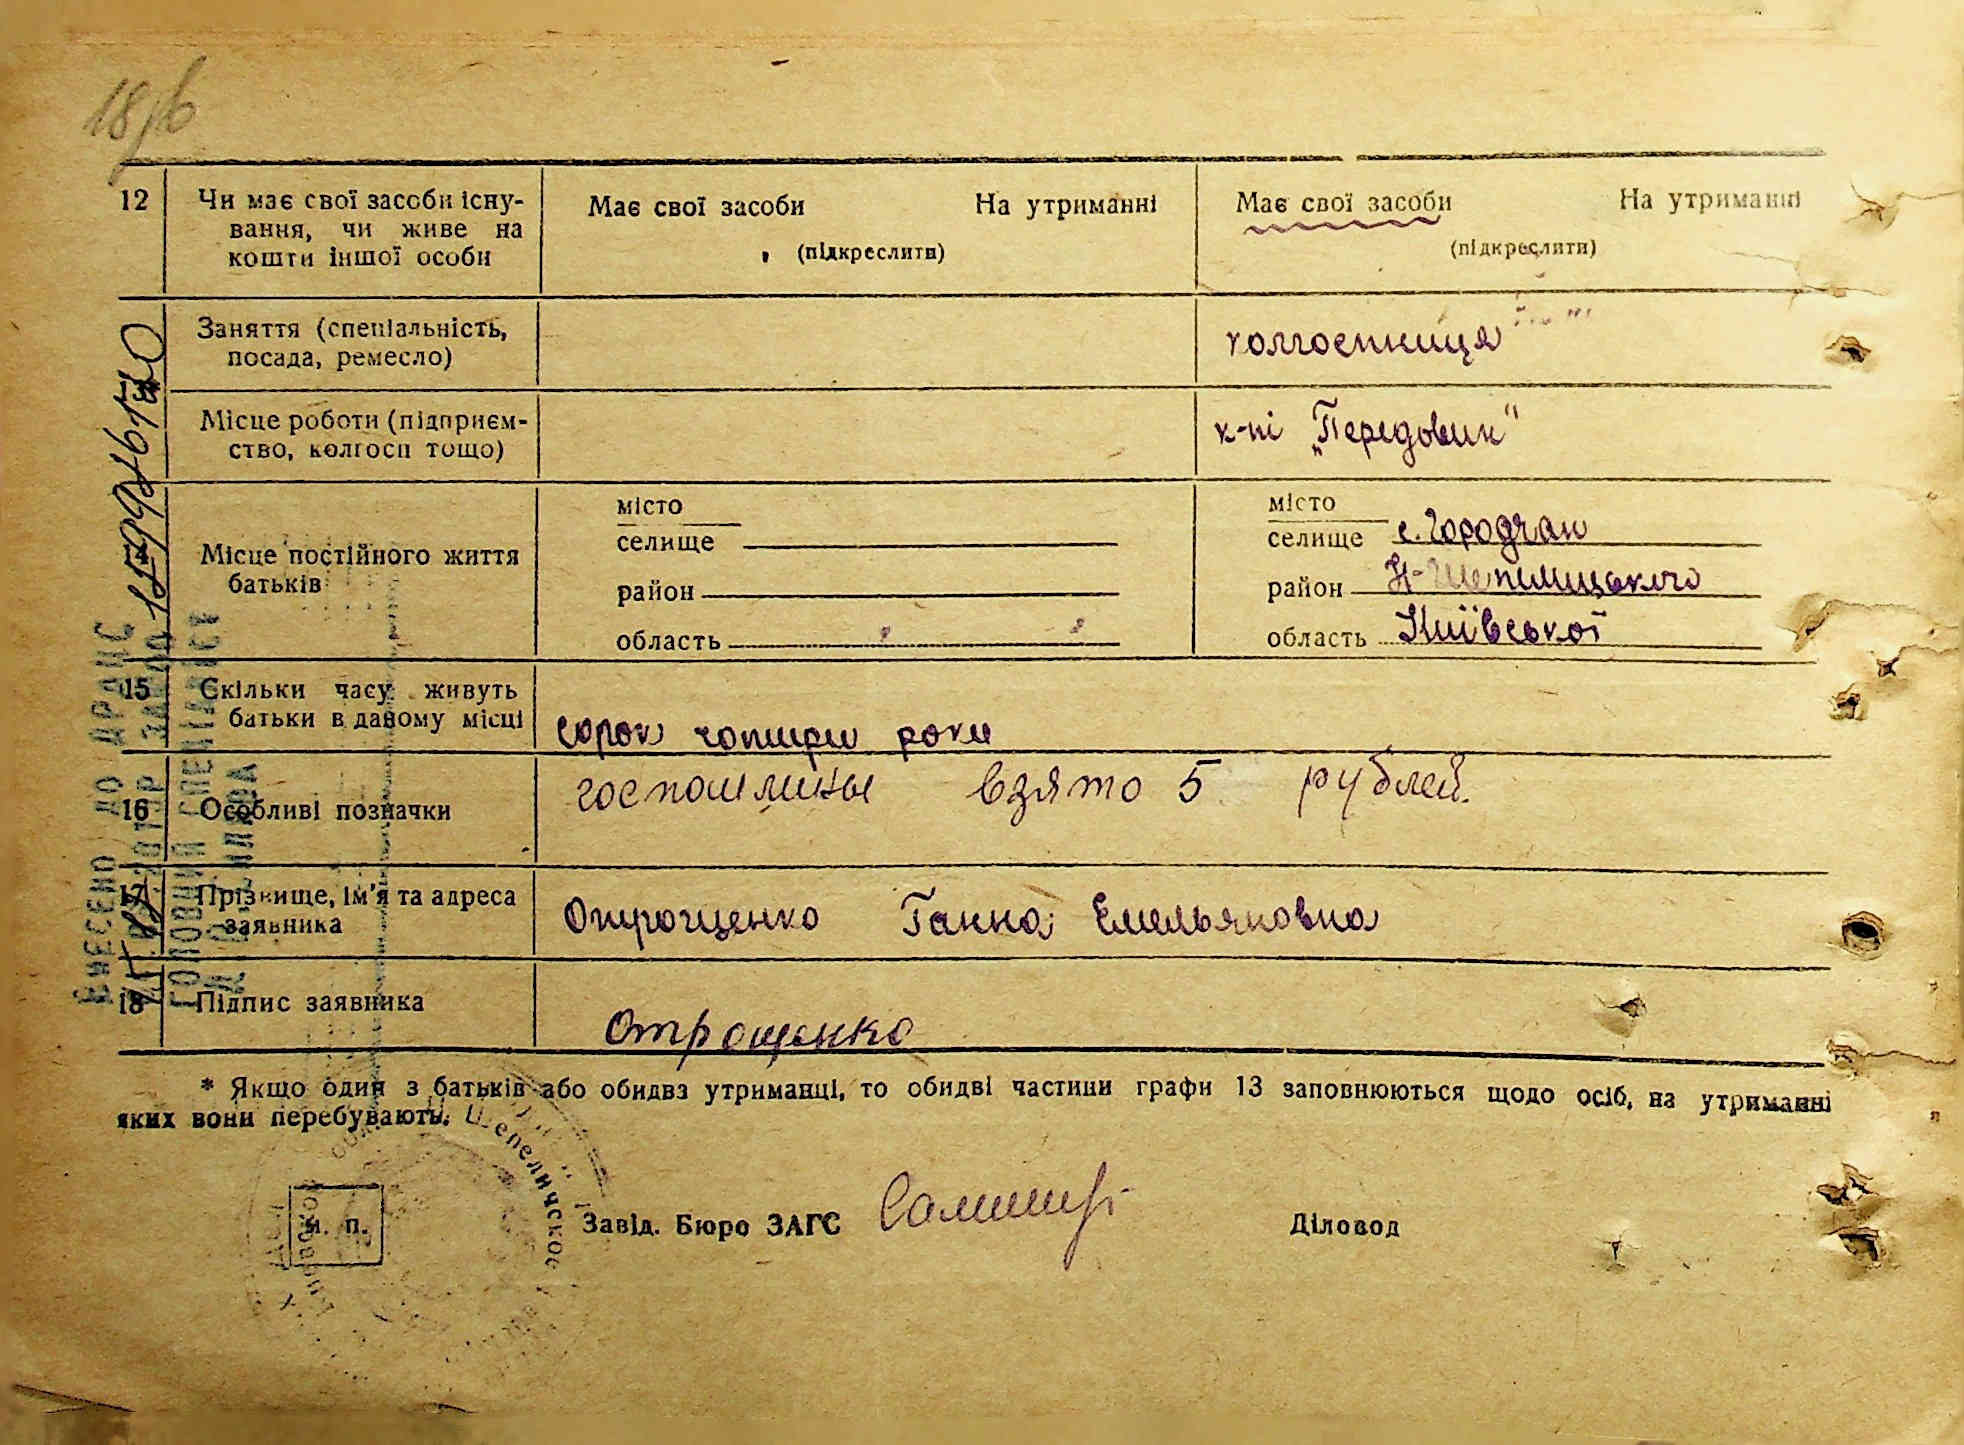 12 Чи має свої засоби існу- Має свої засоби На утриманні Має свої засоби На утриманні
вання, чи живе на (підкреслити) (підкреслити)
кошти іншої особи
Заняття (спеціальність, колгоспниця
посада, ремесло)
Місце роботи (підприєм- к-пі „Передовик"
ство, колгосп тощо)
місто місто
селище селище с. Городчан
Місце постійного життя
батьків
район район Н-Шепилицького
область область Київської
15 Скільки часу живуть
батьки в даному місці сорок чотири роки
16 Особливі позначки госпошлины взято 5 рублей.
17 Прізвище, ім'я та адреса Отрощенко Ганна Емельяновна
заявника
18 Підпис заявника Отрощенко
* Якщо один з батьків або обидва утриманці, то обидві частини графи 13 заповнюються щодо осіб, на утриманні
яких вони перебувають.
м. п. Завід. Бюро ЗАГС Діловод
ВНЕСЕНО ДО ДРАЦС